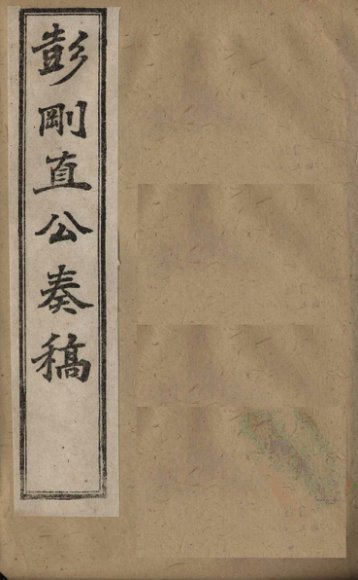 彭剛直公奏稿